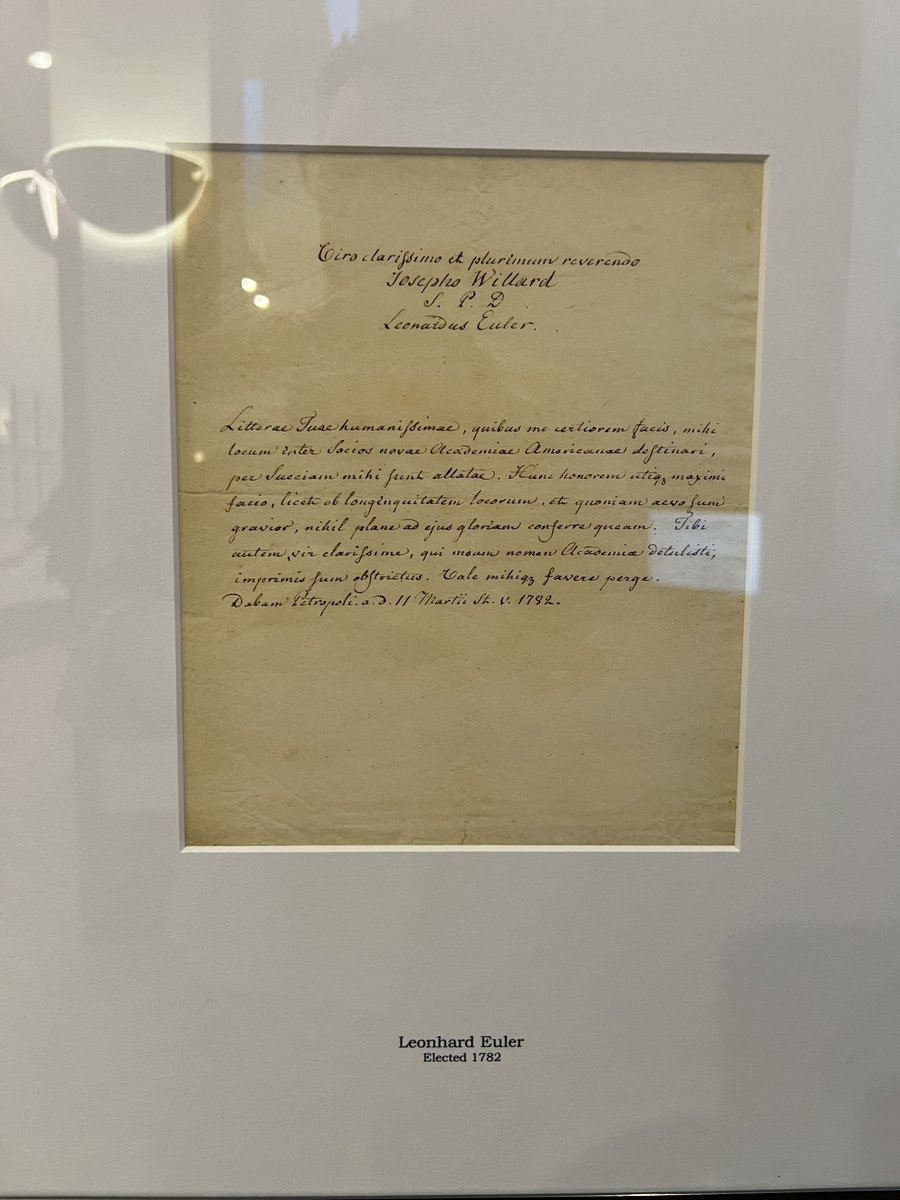 Viro clarissimo et plurimum reverendo
Iosepho Willard
S. P. D
Leonardus Euler.
Litterae Tuae humanissimae, quibus me certiorem facis, mihi
locum inter Socios novae Academiae Americanae destinari,
per Sueciam mihi sunt allatae. Hunc honorem utiqꝫ maximi
facio, licet ob longinquitatem locorum, et quoniam aevo sum
gravior, nihil plane ad ejus gloriam conferre queam. Tibi
autem, vir clarissime, qui meum nomen Academiae detulisti,
imprimis sum obstrictus. Vale mihiqꝫ favere perge.
Dabam Petropoli. a. d. 11 Martii St. v. 1782.
Leonhard Euler
Elected 1782